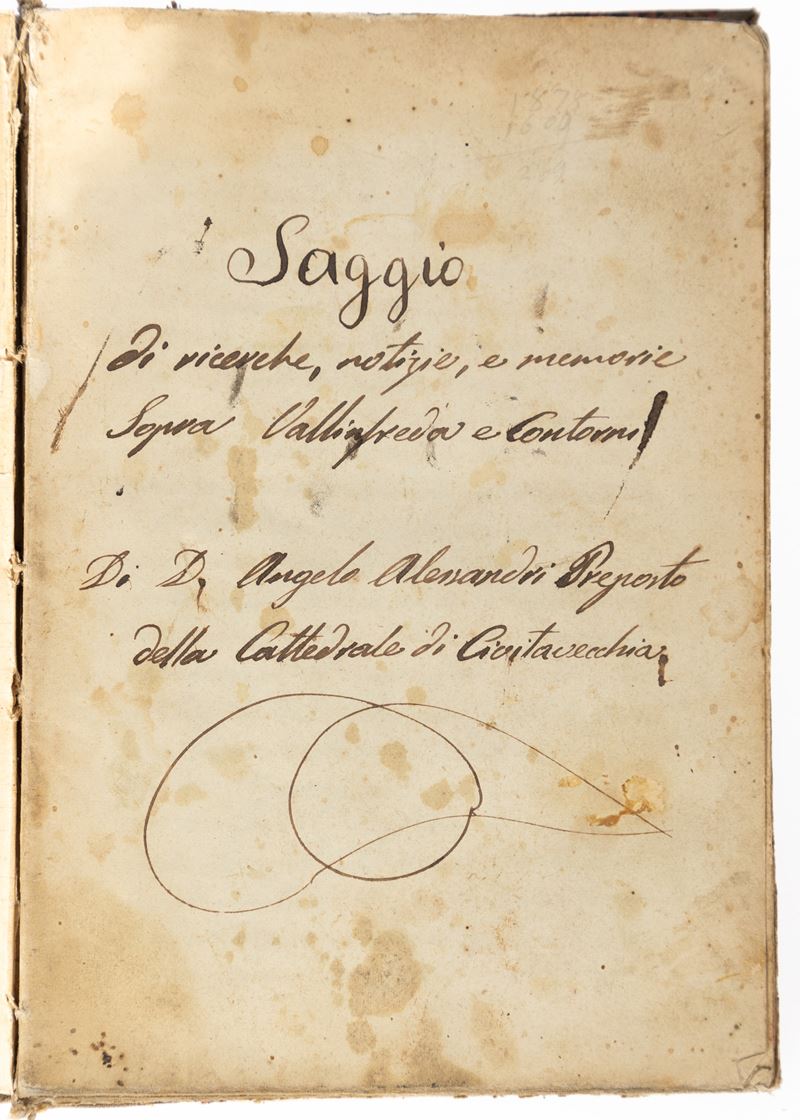 Saggio
di ricerche, notizie, e memorie
Sopra Vallinfreda e Contorni
Di D. Angelo Alessandri Preposto
della Cattedrale di Civitavecchia.